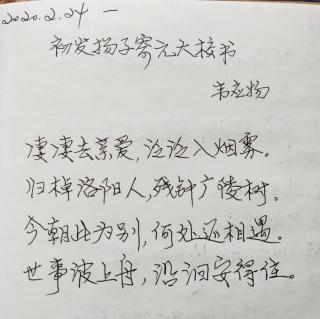 2020.2.24 一
初发扬子寄元大校书
韦应物
凄凄去亲爱,泛泛入烟雾。
归棹洛阳人,残钟广陵树。
今朝此为别,何处还相遇。
世事波上舟,沿洄安得住。